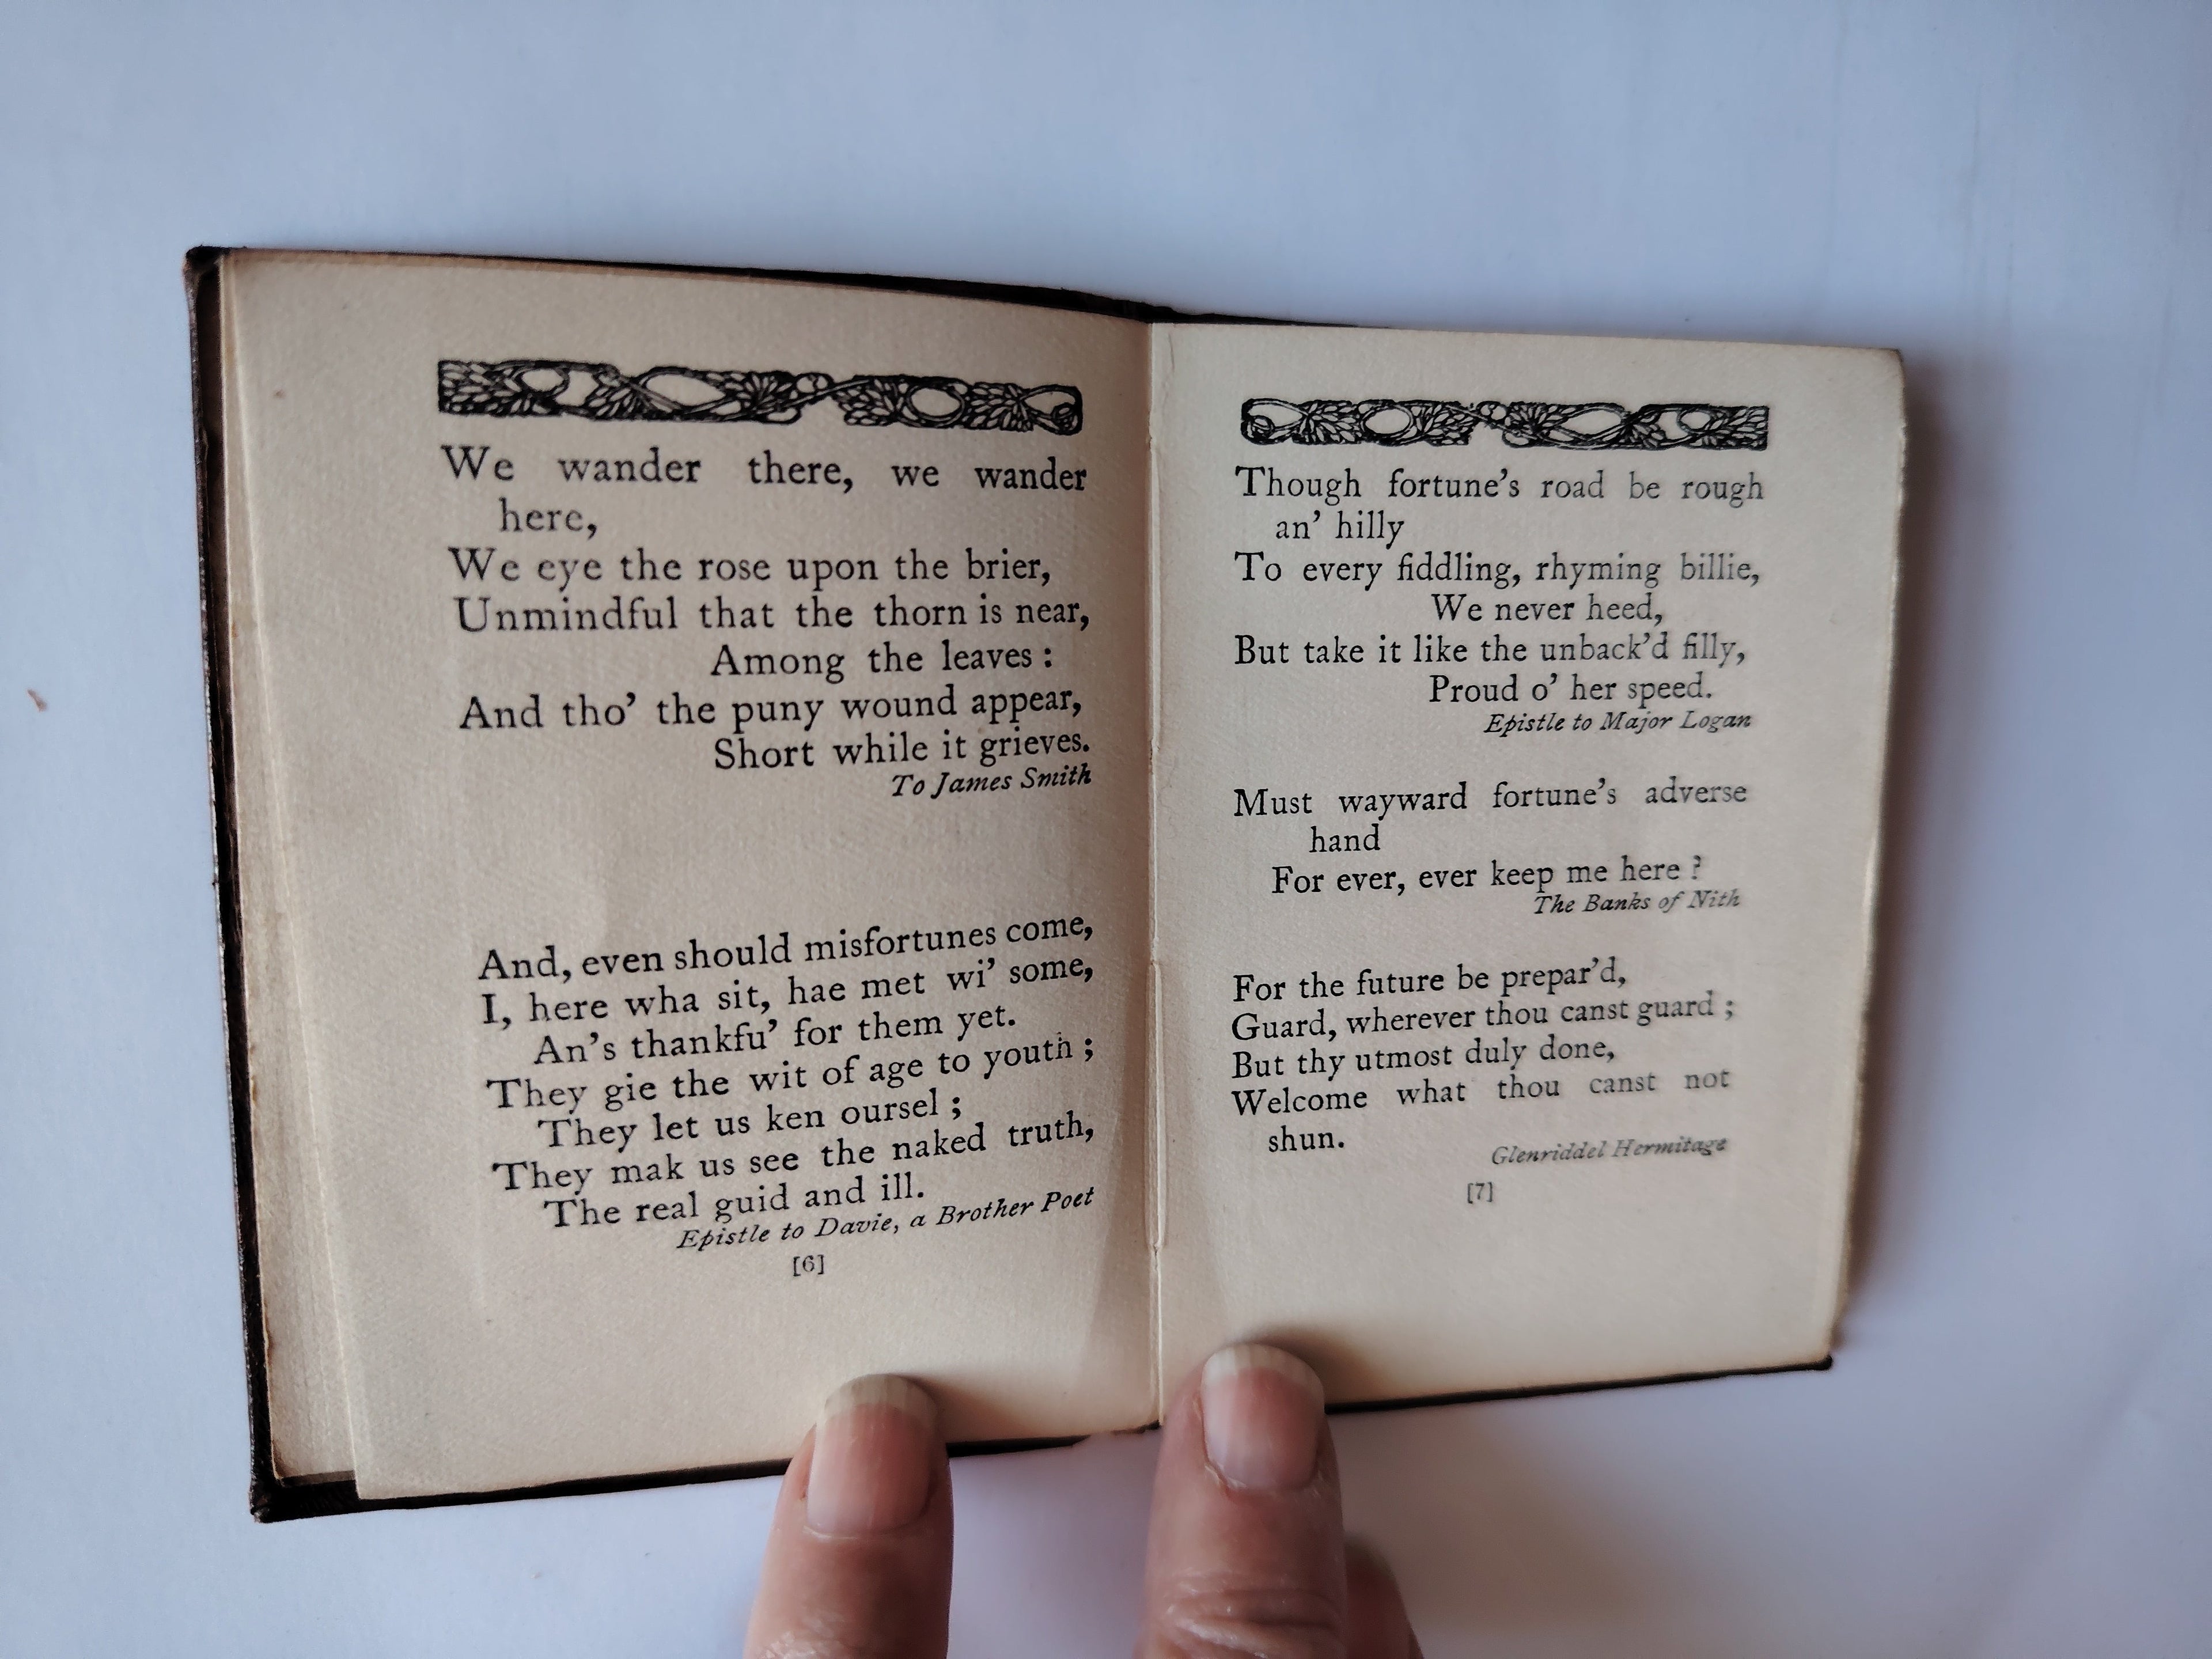 We wander there, we wander
here,
We eye the rose upon the brier,
Unmindful that the thorn is near,
Among the leaves :
And tho’ the puny wound appear,
Short while it grieves.
To James Smith
And, even should misfortunes come,
I, here wha sit, hae met wi’ some,
An’s thankfu’ for them yet.
They gie the wit of age to youth ;
They let us ken oursel ;
They mak us see the naked truth,
The real guid and ill.
Epistle to Davie, a Brother Poet
[6]
Though fortune’s road be rough
an’ hilly
To every fiddling, rhyming billie,
We never heed,
But take it like the unback’d filly,
Proud o’ her speed.
Epistle to Major Logan
Must wayward fortune’s adverse
hand
For ever, ever keep me here ?
The Banks of Nith
For the future be prepar’d,
Guard, wherever thou canst guard ;
But thy utmost duly done,
Welcome what thou canst not
shun.
Glenriddel Hermitage
[7]